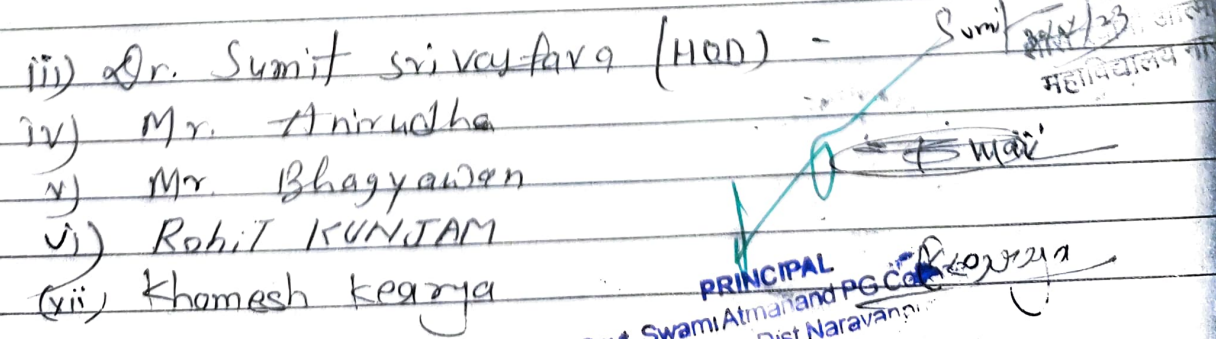 iii) Dr. Sumit srivastava (HOD) - Sumit
महाविद्यालय
iv) Mr. Anirudha
v) Mr. Bhagyawan
vi) Rohit KUNJAM
(xii) Khomesh kearya
PRINCIPAL
Swami Atmanand PG
Dist